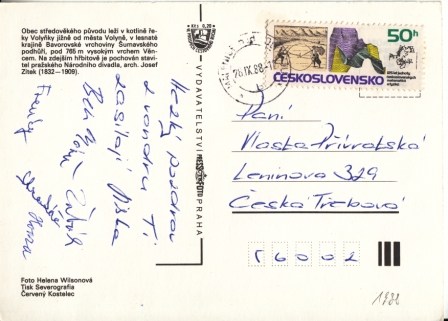 Obec středověkého původu leží v kotlině ře-
ky Volyňky jižně od města Volyně, v lesnaté
krajině Bavorovské vrchoviny Šumavského
podhůří, pod 765 m vysokým vrchem Věn-
cem. Na zdejším hřbitově je pochován stavi-
tel pražského Národního divadla, arch. Josef
Zítek (1832–1909).
Kčs 0,20
Hezký pozdrav
z vandru Ti
zasílají Miška
VYDAVATELSTVÍ PRESSFOTO PRAHA
50h
ČESKOSLOVENSKO
26.IX.88-1
Paní
Vlasta Přívratská
Leninova 329
Česká Třebová
56002
Foto Helena Wilsonová
Tisk Severografia
Červený Kostelec
1988